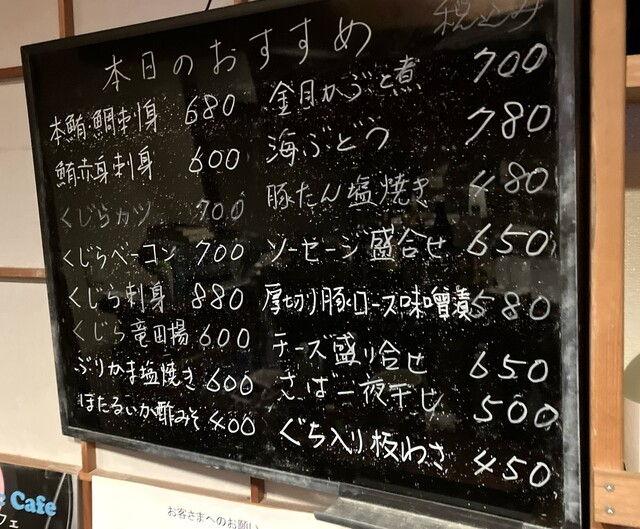 本日のおすすめ
税込み
本鮪・鯛刺身 680
鮪赤身刺身 600
くじらカツ 700
くじらベーコン 700
くじら刺身 880
くじら竜田揚 600
ぶりかま塩焼き 600
ほたるいか酢みそ 400
金目かぶと煮 700
海ぶどう 780
豚たん塩焼き 480
ソーセージ盛合せ 650
厚切り豚ロース味噌漬 580
チーズ盛り合せ 650
さば一夜干し 500
ぐち入り板わさ 450
お客さまへのお願い
Cafe
フェ